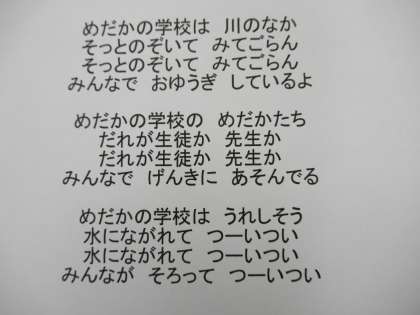 めだかの学校は　川のなか
そっとのぞいて　みてごらん
そっとのぞいて　みてごらん
みんなで　おゆうぎ　しているよ
めだかの学校の　めだかたち
だれが生徒か　先生か
だれが生徒か　先生か
みんなで　げんきに　あそんでる
めだかの学校は　うれしそう
水にながれて　つーいつい
水にながれて　つーいつい
みんなが　そろって　つーいつい